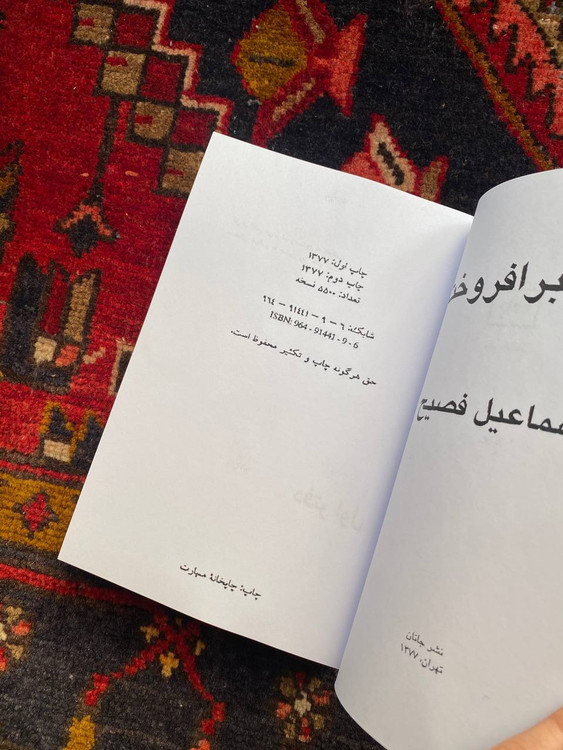 برافروخ
سماعیل فصیح
نشر جانان
تهران، ۱۳۷۷
چاپ اول: ۱۳۷۷
چاپ دوم: ۱۳۷۷
تعداد: ۵۵۰۰ نسخه
شابک: ۶ - ۹ - ۹۱۴۴۱ - ۹۶۴
ISBN: 964 - 91441 - 9 - 6
حق هرگونه چاپ و تکثیر محفوظ است.
چاپ: چاپخانهٔ مهارت
دفتر اول